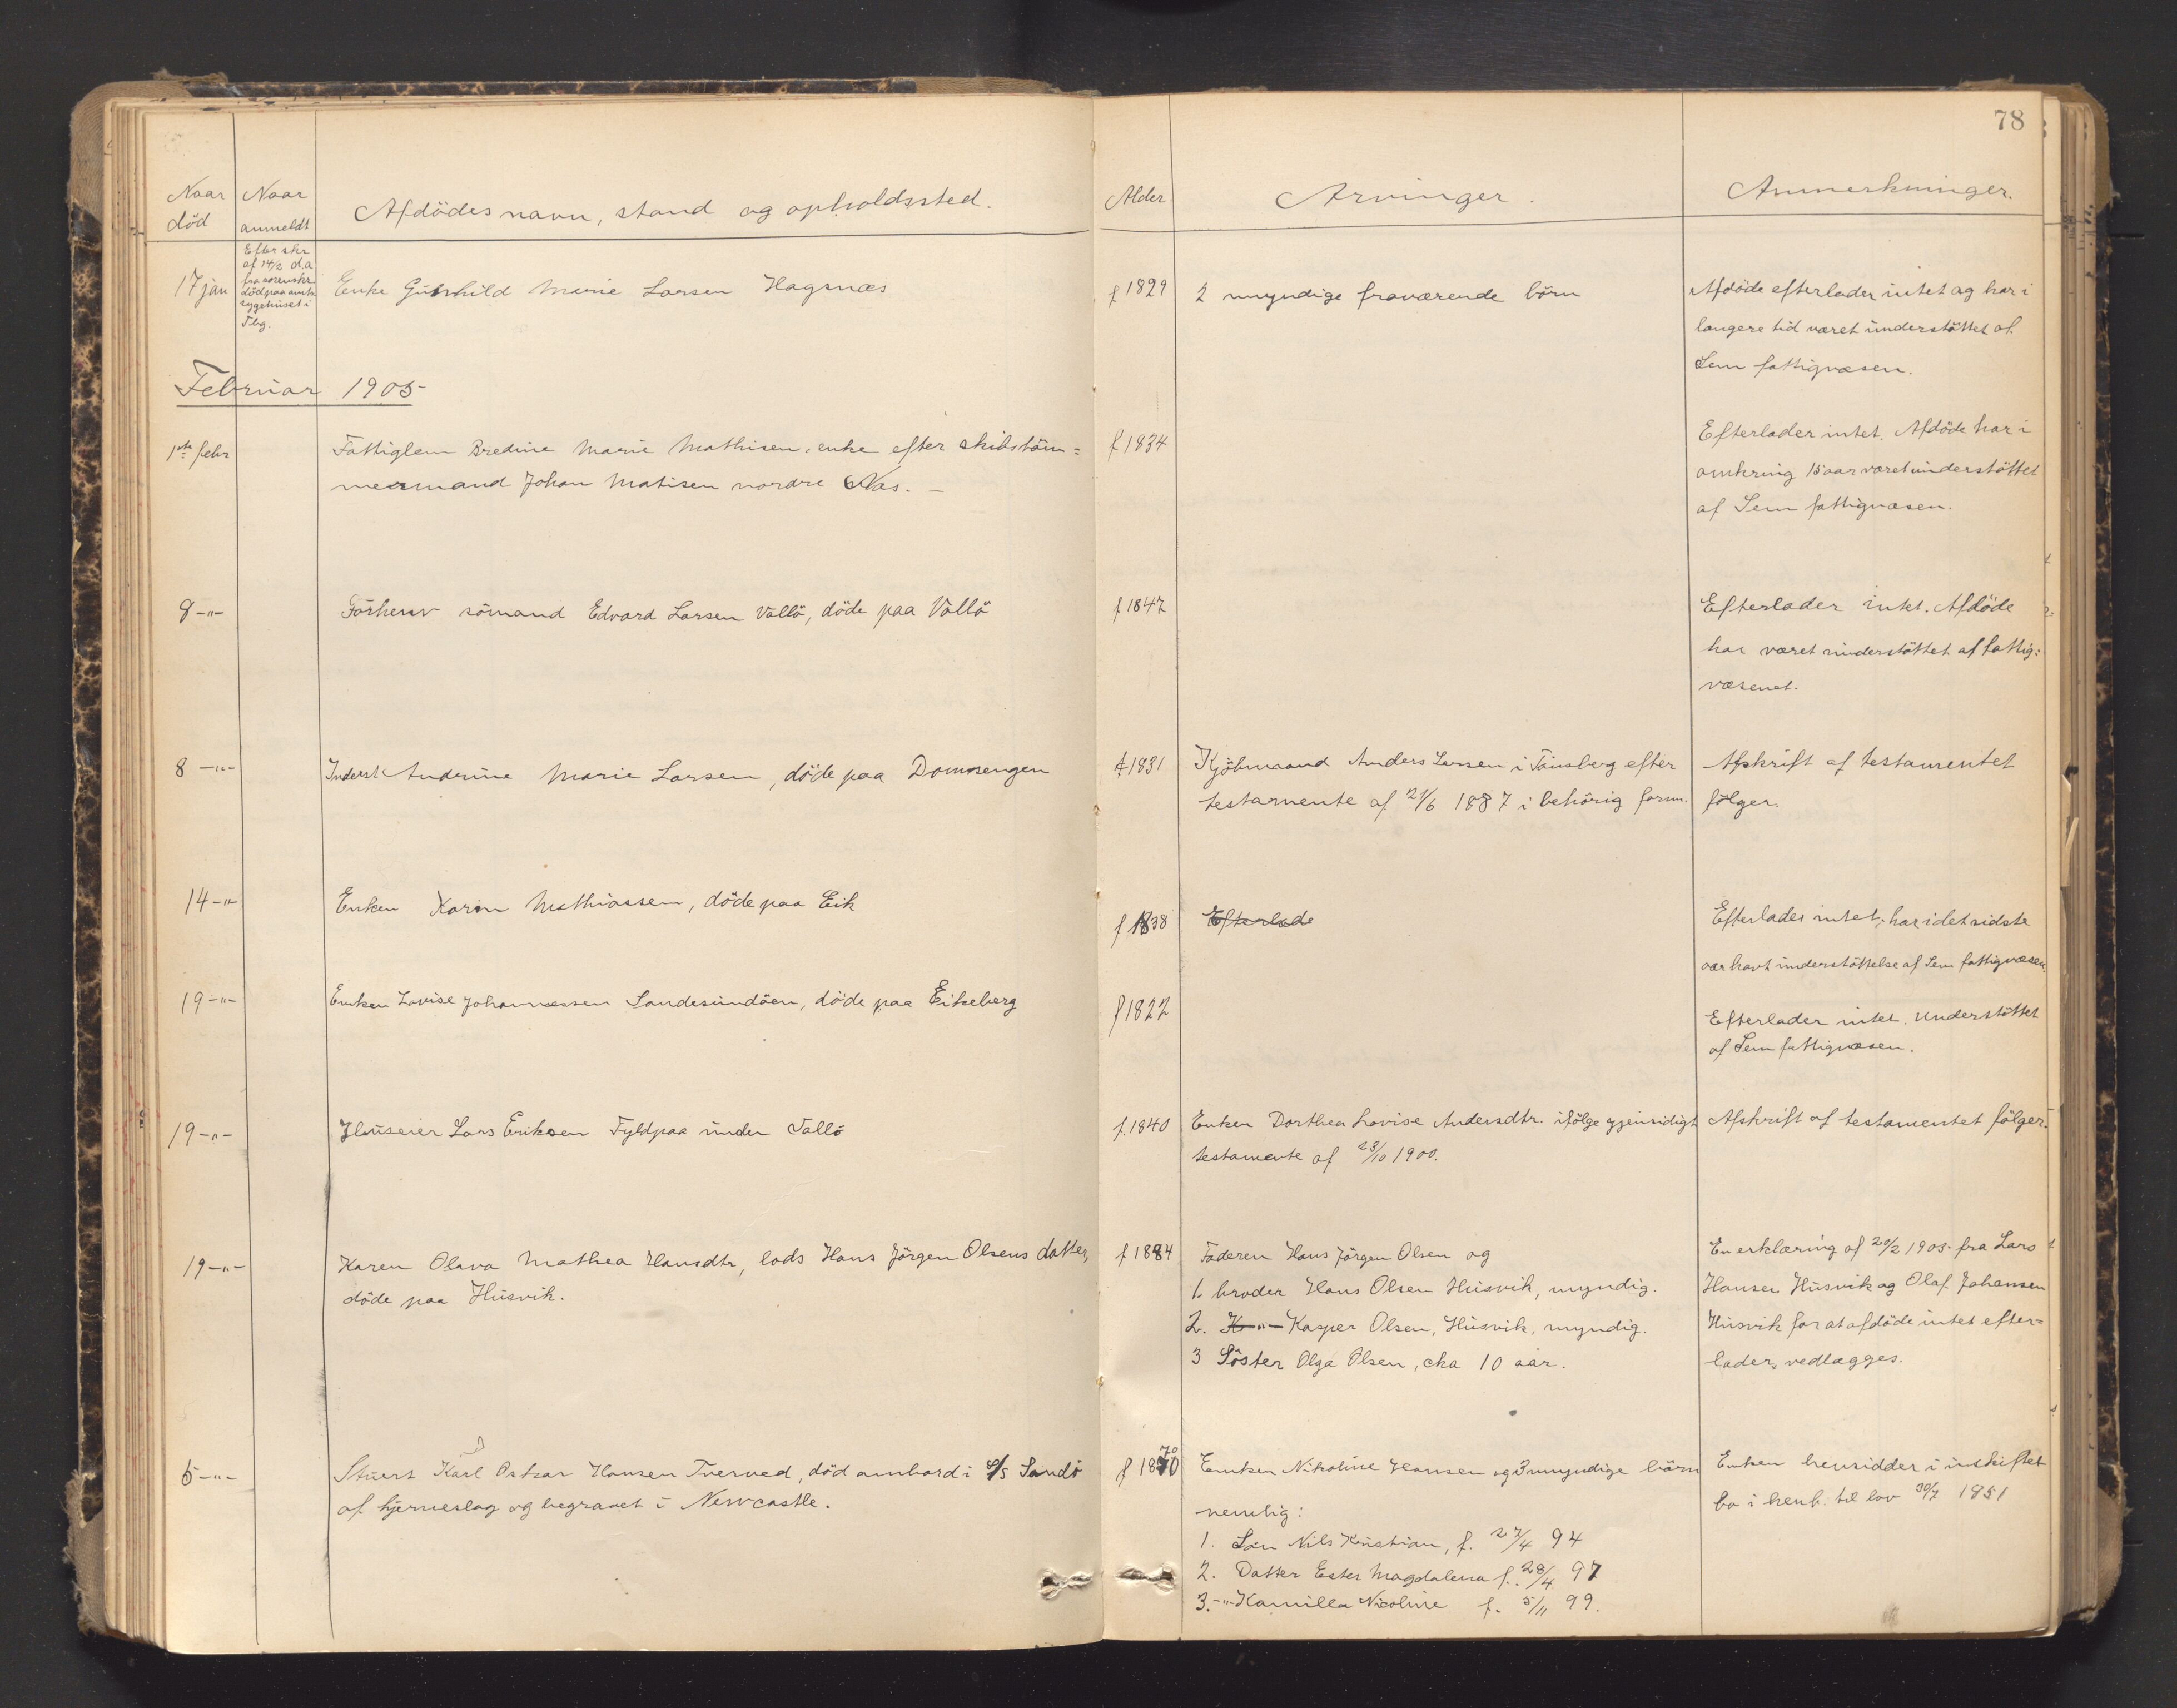 78
Naar död
Naar anmeldt
Afdödes navn, stand og opholdssted.
Alder
Arvinger.
Anmerkninger.
17 jan
Efter skr.
af 14/2 d.a.
fra sorenskr.
död paa amts
sygehuset i
Tbg.
Enke Gunhild Marie Larsen Hagsnæs
f 1829
2 myndige fraværende börn
Afdöde efterlader intet og har i
længere tid været understöttet af
Sem fattigvæsen.
Februar 1905
1ste febr
Fattiglem Bredine Marie Mathisen, enke efter skibstöm=
mermand Johan Matisen nordre Næs. —
f 1834
Efterlader intet. Afdöde har i
omkring 15 aar været understöttet
af Sem fattigvæsen.
8 -"-
Forhenv sömand Edvard Larsen Vallö, döde paa Vallö
f 1847
Efterlader intet. Afdöde
har været understöttet af fattig=
væsenet.
8 -"-
Inderst Andrine Marie Larsen, döde paa Dommengen
f 1831
Kjöbmand Anders Larsen i Tönsberg efter
testamente af 21/6 1887 i behörig form.
Afskrift af testamentet
fölger.
14 -"-
Enken Karen Mathiassen, döde paa Eik
f 1838
Efterlade
Efterlader intet, har i det sidste
aar havt understöttelse af Sem fattigvæsen.
19 -"-
Enken Lovise Johannessen Sandesundöen, döde paa Eikeberg
f 1822
Efterlader intet. Understöttet
af Sem fattigvæsen.
19 -"-
Huseier Lars Eriksen Fyldpaa under Vallö
f. 1840
Enken Dorthea Lovise Andersdtr. ifölge gjensidigt
testamente af 23/10 1900.
Afskrift af testamentet fölger.
19 -"-
Karen Olava Mathea Hansdtr, lods Hans Jörgen Olsens datter,
döde paa Husvik.
f 1884
Faderen Hans Jörgen Olsen og
1. broder Hans Olsen Husvik, myndig.
2. -"- Kasper Olsen, Husvik, myndig.
3 Söster Olga Olsen, cka 10 aar.
En erklæring af 20/2 1905 fra Lars
Hansen Husvik og Olaf Johansen
Husvik for at afdöde intet efter=
lader, vedlægges.
5 -"-
Stuert Karl Oskar Hansen Tverved, död ombord i S/S Sandö
af hjerneslag og begravet i Newcastle.
f 1870
70
Enken Nikoline Hansen og 3 umyndige börn
nemlig:
1. Sön Nils Kristian, f. 27/4 94
2. Datter Ester Magdalena f. 28/4 97
3. -"- Kamilla Nicoline f. 5/11 99.
Enken hensidder i uskiftet
bo i henh. til lov 30/7 1851